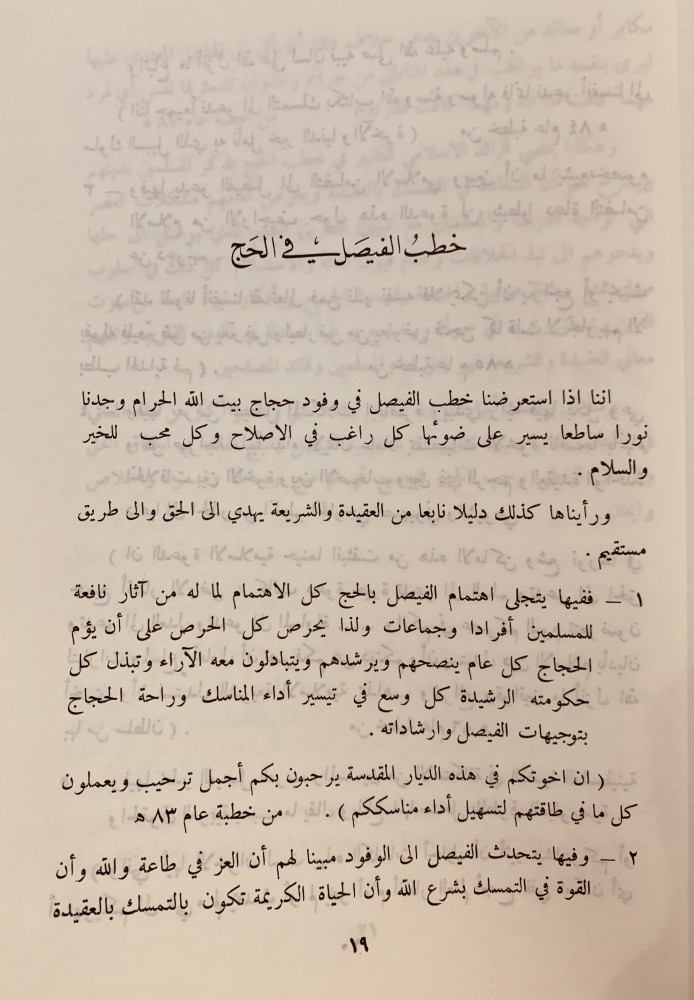 خطب الفيصل في الحج
اننا اذا استعرضنا خطب الفيصل في وفود حجاج بيت الله الحرام وجدنا
نورا ساطعا يسير على ضوئها كل راغب في الاصلاح وكل محب للخير
والسلام .
ورأيناها كذلك دليلا نابعا من العقيدة والشريعة يهدي الى الحق والى طريق
مستقيم .
١ – ففيها يتجلى اهتمام الفيصل بالحج كل الاهتمام لما له من آثار نافعة
للمسلمين أفرادا وجماعات ولذا يحرص كل الحرص على أن يؤم
الحجاج كل عام ينصحهم ويرشدهم ويتبادلون معه الآراء وتبذل كل
حكومته الرشيدة كل وسع في تيسير أداء المناسك وراحة الحجاج
بتوجيهات الفيصل وارشاداته .
( ان اخوتكم في هذه الديار المقدسة يرحبون بكم أجمل ترحيب ويعملون
كل ما في طاقتهم لتسهيل أداء مناسككم ) . من خطبة عام ٨٣ ه
٢ – وفيها يتحدث الفيصل الى الوفود مبينا لهم أن العز في طاعة والله وأن
القوة في التمسك بشرع الله وأن الحياة الكريمة تكون بالتمسك بالعقيدة
١٩